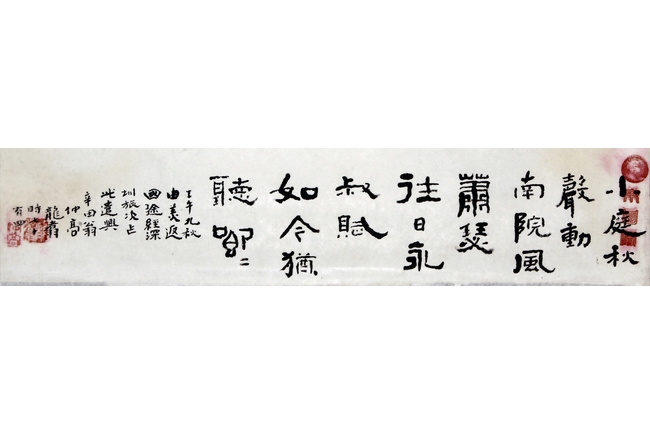 小庭秋
聲動
南院風
蕭瑟
往日永
叔賦
如今猶
聽唧〻
壬午九秋
由美返
國途經深
圳旅次占
此遣興
辛田翁
仲高
龍翁
時
有四